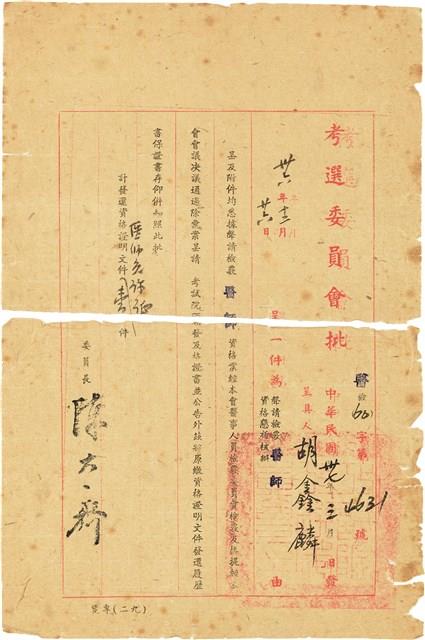 考選委員會批
醫檢60字第4631號
中華民國卅七年三月 日發
具呈人 胡鑫麟
卅六年十二月廿六日
呈一件為聲請檢覈醫師資格懇檢核擬由
呈及附件均悉據聲請檢覈 醫師 資格業經本會醫事人員檢覈委員會檢覈及格提經本
會會議決議通過除彙案呈請 考試院核發及格證書並公告外茲將原繳資格證明文件發還履歷
書保證書存仰併知照此批
計發還資格證明文件 壹 件
委員長 陳大齊
(九二)專技